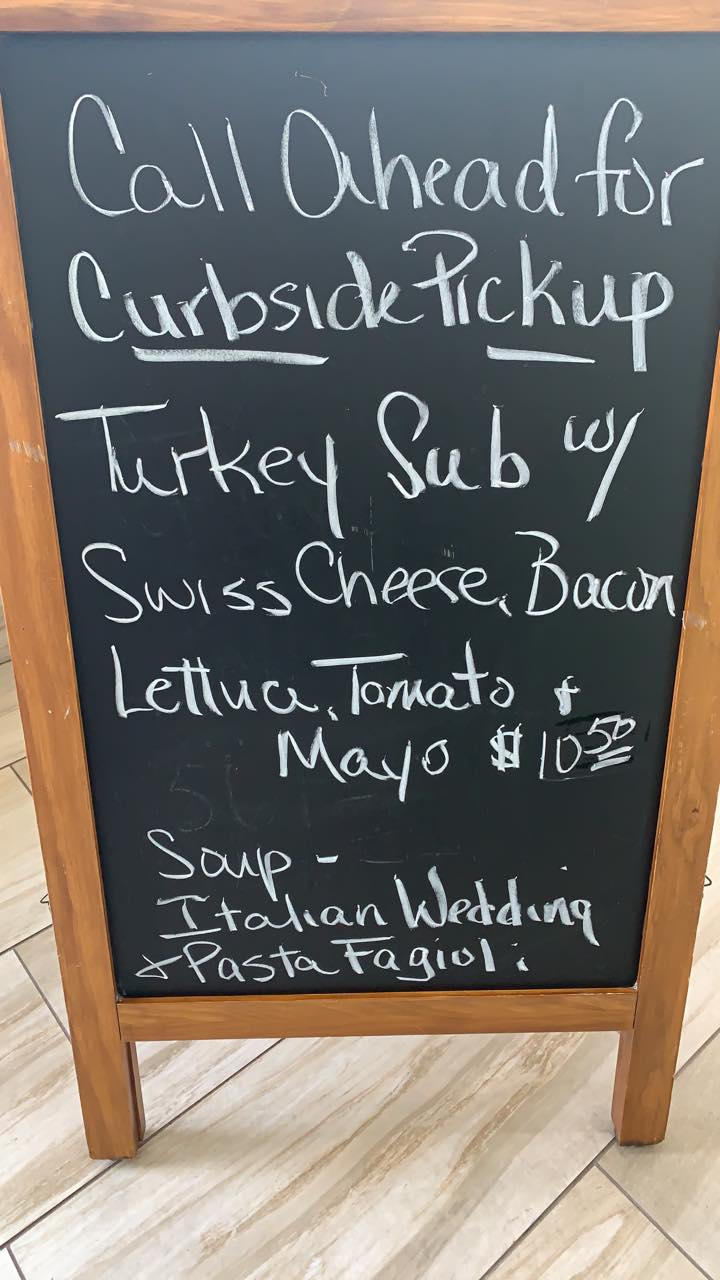 Call Ahead for
Curbside Pickup
Turkey Sub w/
Swiss Cheese, Bacon
Lettuce, Tomato &
Mayo $10.50
Soup -
Italian Wedding
& Pasta Fagioli